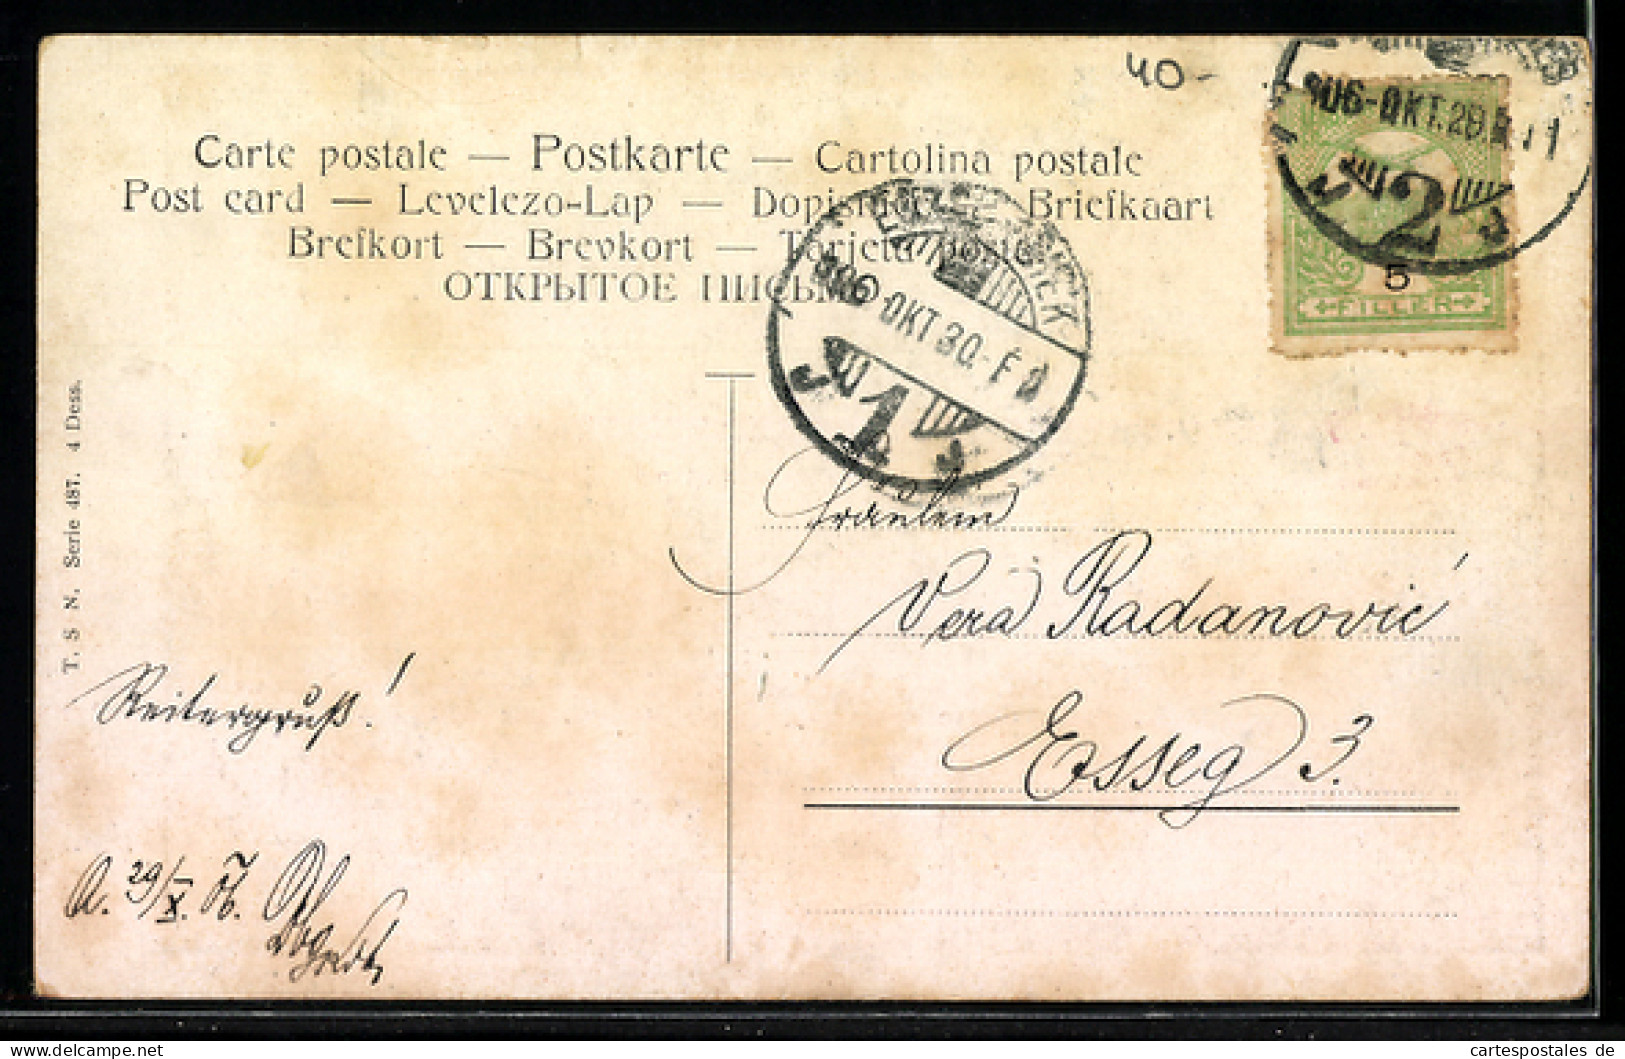 40-
Carte postale — Postkarte — Cartolina postale
Post card — Levelezo-Lap — Dopisnice — Briefkaart
Brefkort — Brevkort — Tarjeta postal
ОТКРЫТОЕ ПИСЬМО
906-OKT.29.
2
5
FILLER
906 OKT 30.
1
T. S N. Serie 487. 4 Dess.
Fräulein
Vera Radanović
Esseg 3.
Reitergruß!
A. 29/X. 06.
cartespostales de